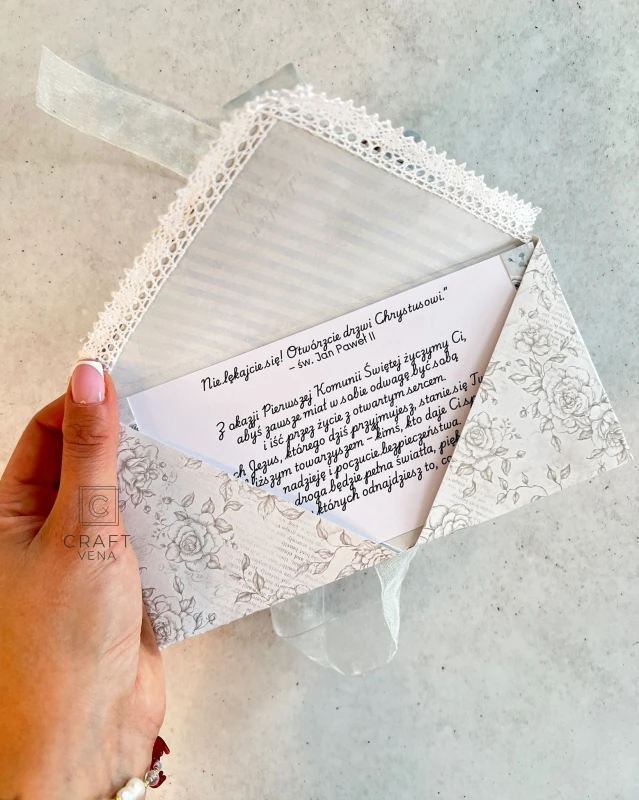 Nie lękajcie się! Otwórzcie drzwi Chrystusowi."
– św. Jan Paweł II
Z okazji Pierwszej Komunii Świętej życzymy Ci,
abyś zawsze miał w sobie odwagę być sobą
i iść przez życie z otwartym sercem.
ch Jezus, którego dziś przyjmujesz, stanie się Tw
liższym towarzyszem – kimś, kto daje Ci sp
nadzieję i poczucie bezpieczeństwa.
droga będzie pełna światła, pięk
których odnajdziesz to, co
CRAFT
VENA